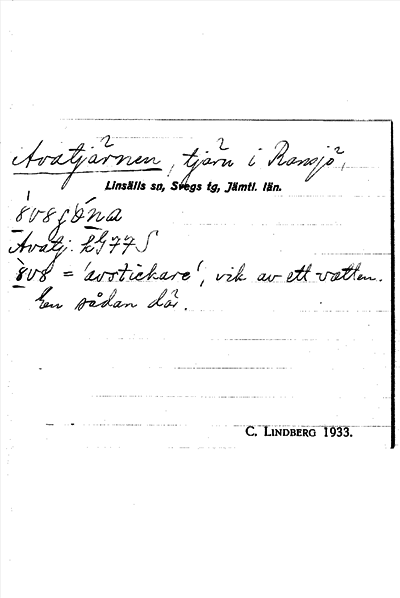 Avatjärnen, tjärn i Ransjö,
Linsälls sn, Svegs tg, Jämtl. län.
Avatj.
= 'avstickare', vik av ett vatten.
En sådan där.
C. LINDBERG 1933.